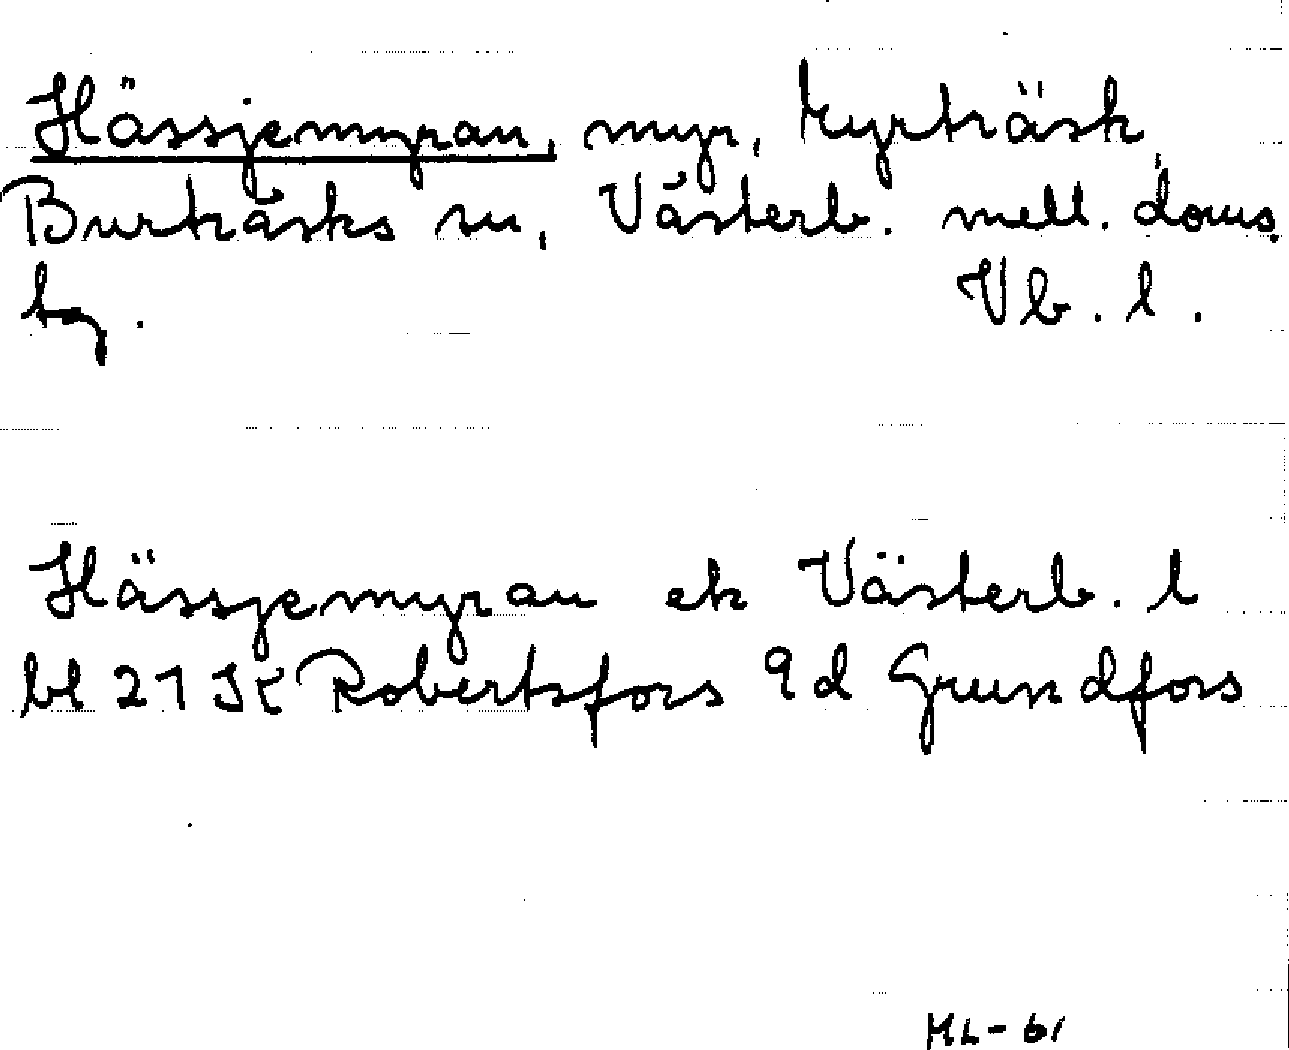 Hässjemyran, myr, Kyrträsk,
Burträsks sn, Västerb. mell. doms.
tg. Vb. l.
Hässjemyran ek Västerb. l
bl 21 JK Robertsfors 9d Grundfors
ML-61